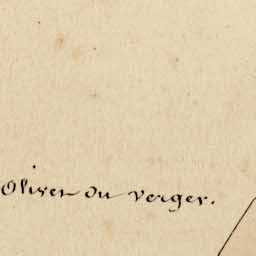 Olivet du verger.